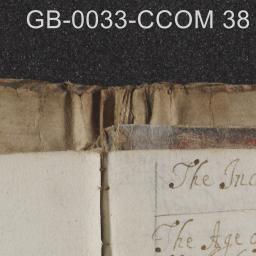 GB-0033-CCOM 38
The
The Age